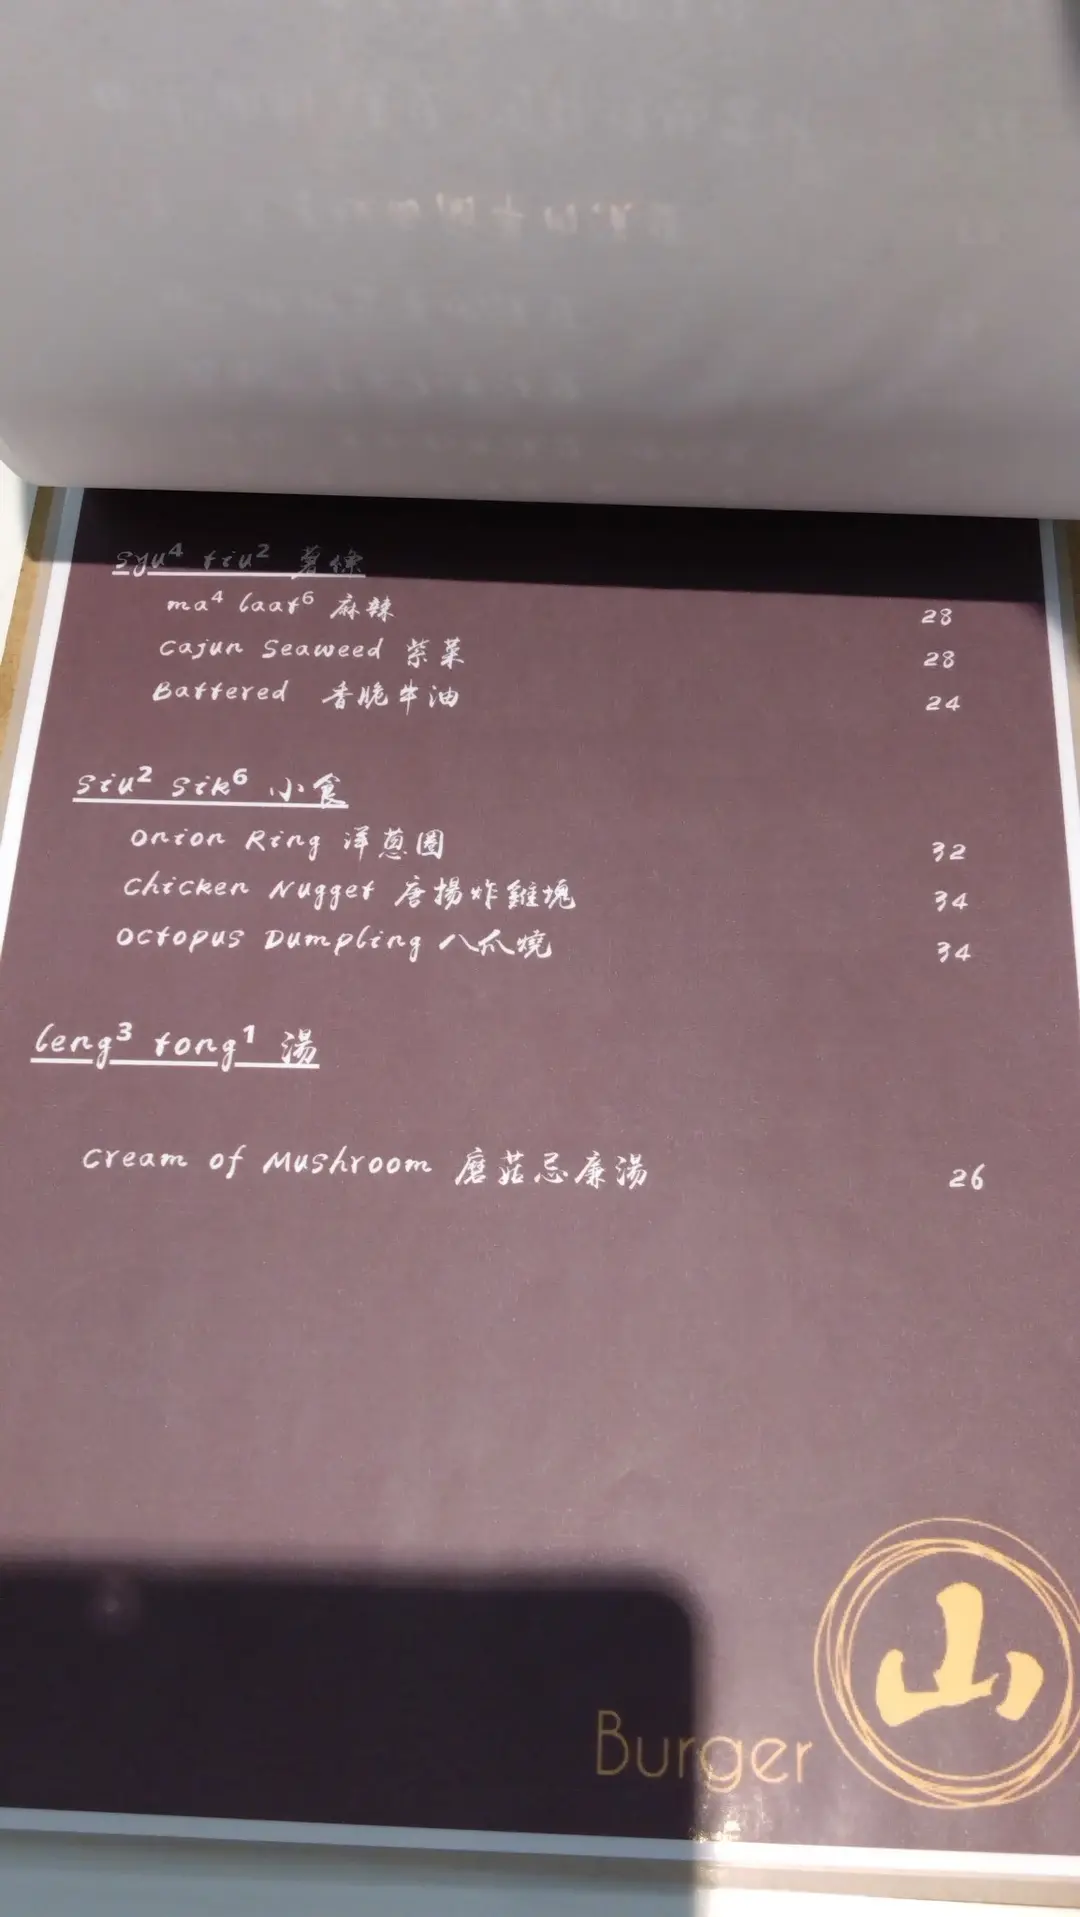 syu⁴ tiu² 薯條
ma⁴ laat⁶ 麻辣 28
Cajun Seaweed 紫菜 28
Battered 香脆牛油 24
siu² sik⁶ 小食
Onion Ring 洋蔥圈 32
Chicken Nugget 唐揚炸雞塊 34
Octopus Dumpling 八爪燒 34
leng³ tong¹ 湯
Cream of Mushroom 磨菇忌廉湯 26
山
Burger